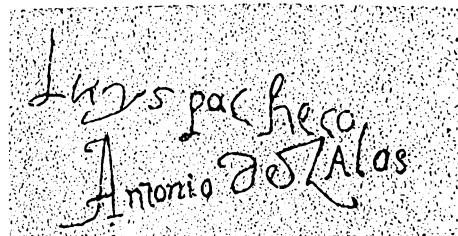 Luys pacheco
Antonio de ZAlas